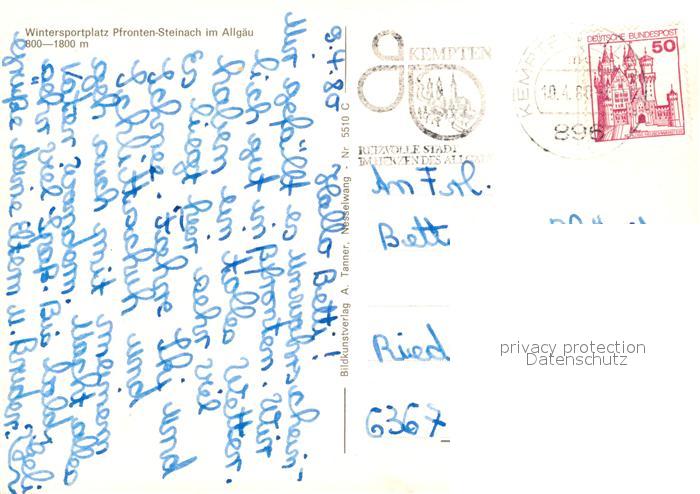 Wintersportplatz Pfronten-Steinach im Allgäu
800—1800 m
9.4.80
Hallo Betti!
Mir gefällt es unwahrschein
lich gut in Pfronten. Wir
haben ein tolles Wetter.
Es liegt hier sehr viel
Schnee. Ich fahre Ski und
Schlittschuh und
geh auch mit meinem
Vater wandern. Macht alles
sehr viel Spaß. Bis bald!
Grüße deine Eltern u. Bruder.
Bildkunstverlag A. Tanner, Nesselwang - Nr 5510 C
KEMPTEN
REIZVOLLE STADT
IM HERZEN DES ALLGÄUS
KEMPTEN
10.4.80
896
DEUTSCHE BUNDESPOST
50
An Frl.
Bett
Ried
6367
privacy protection
Datenschutz